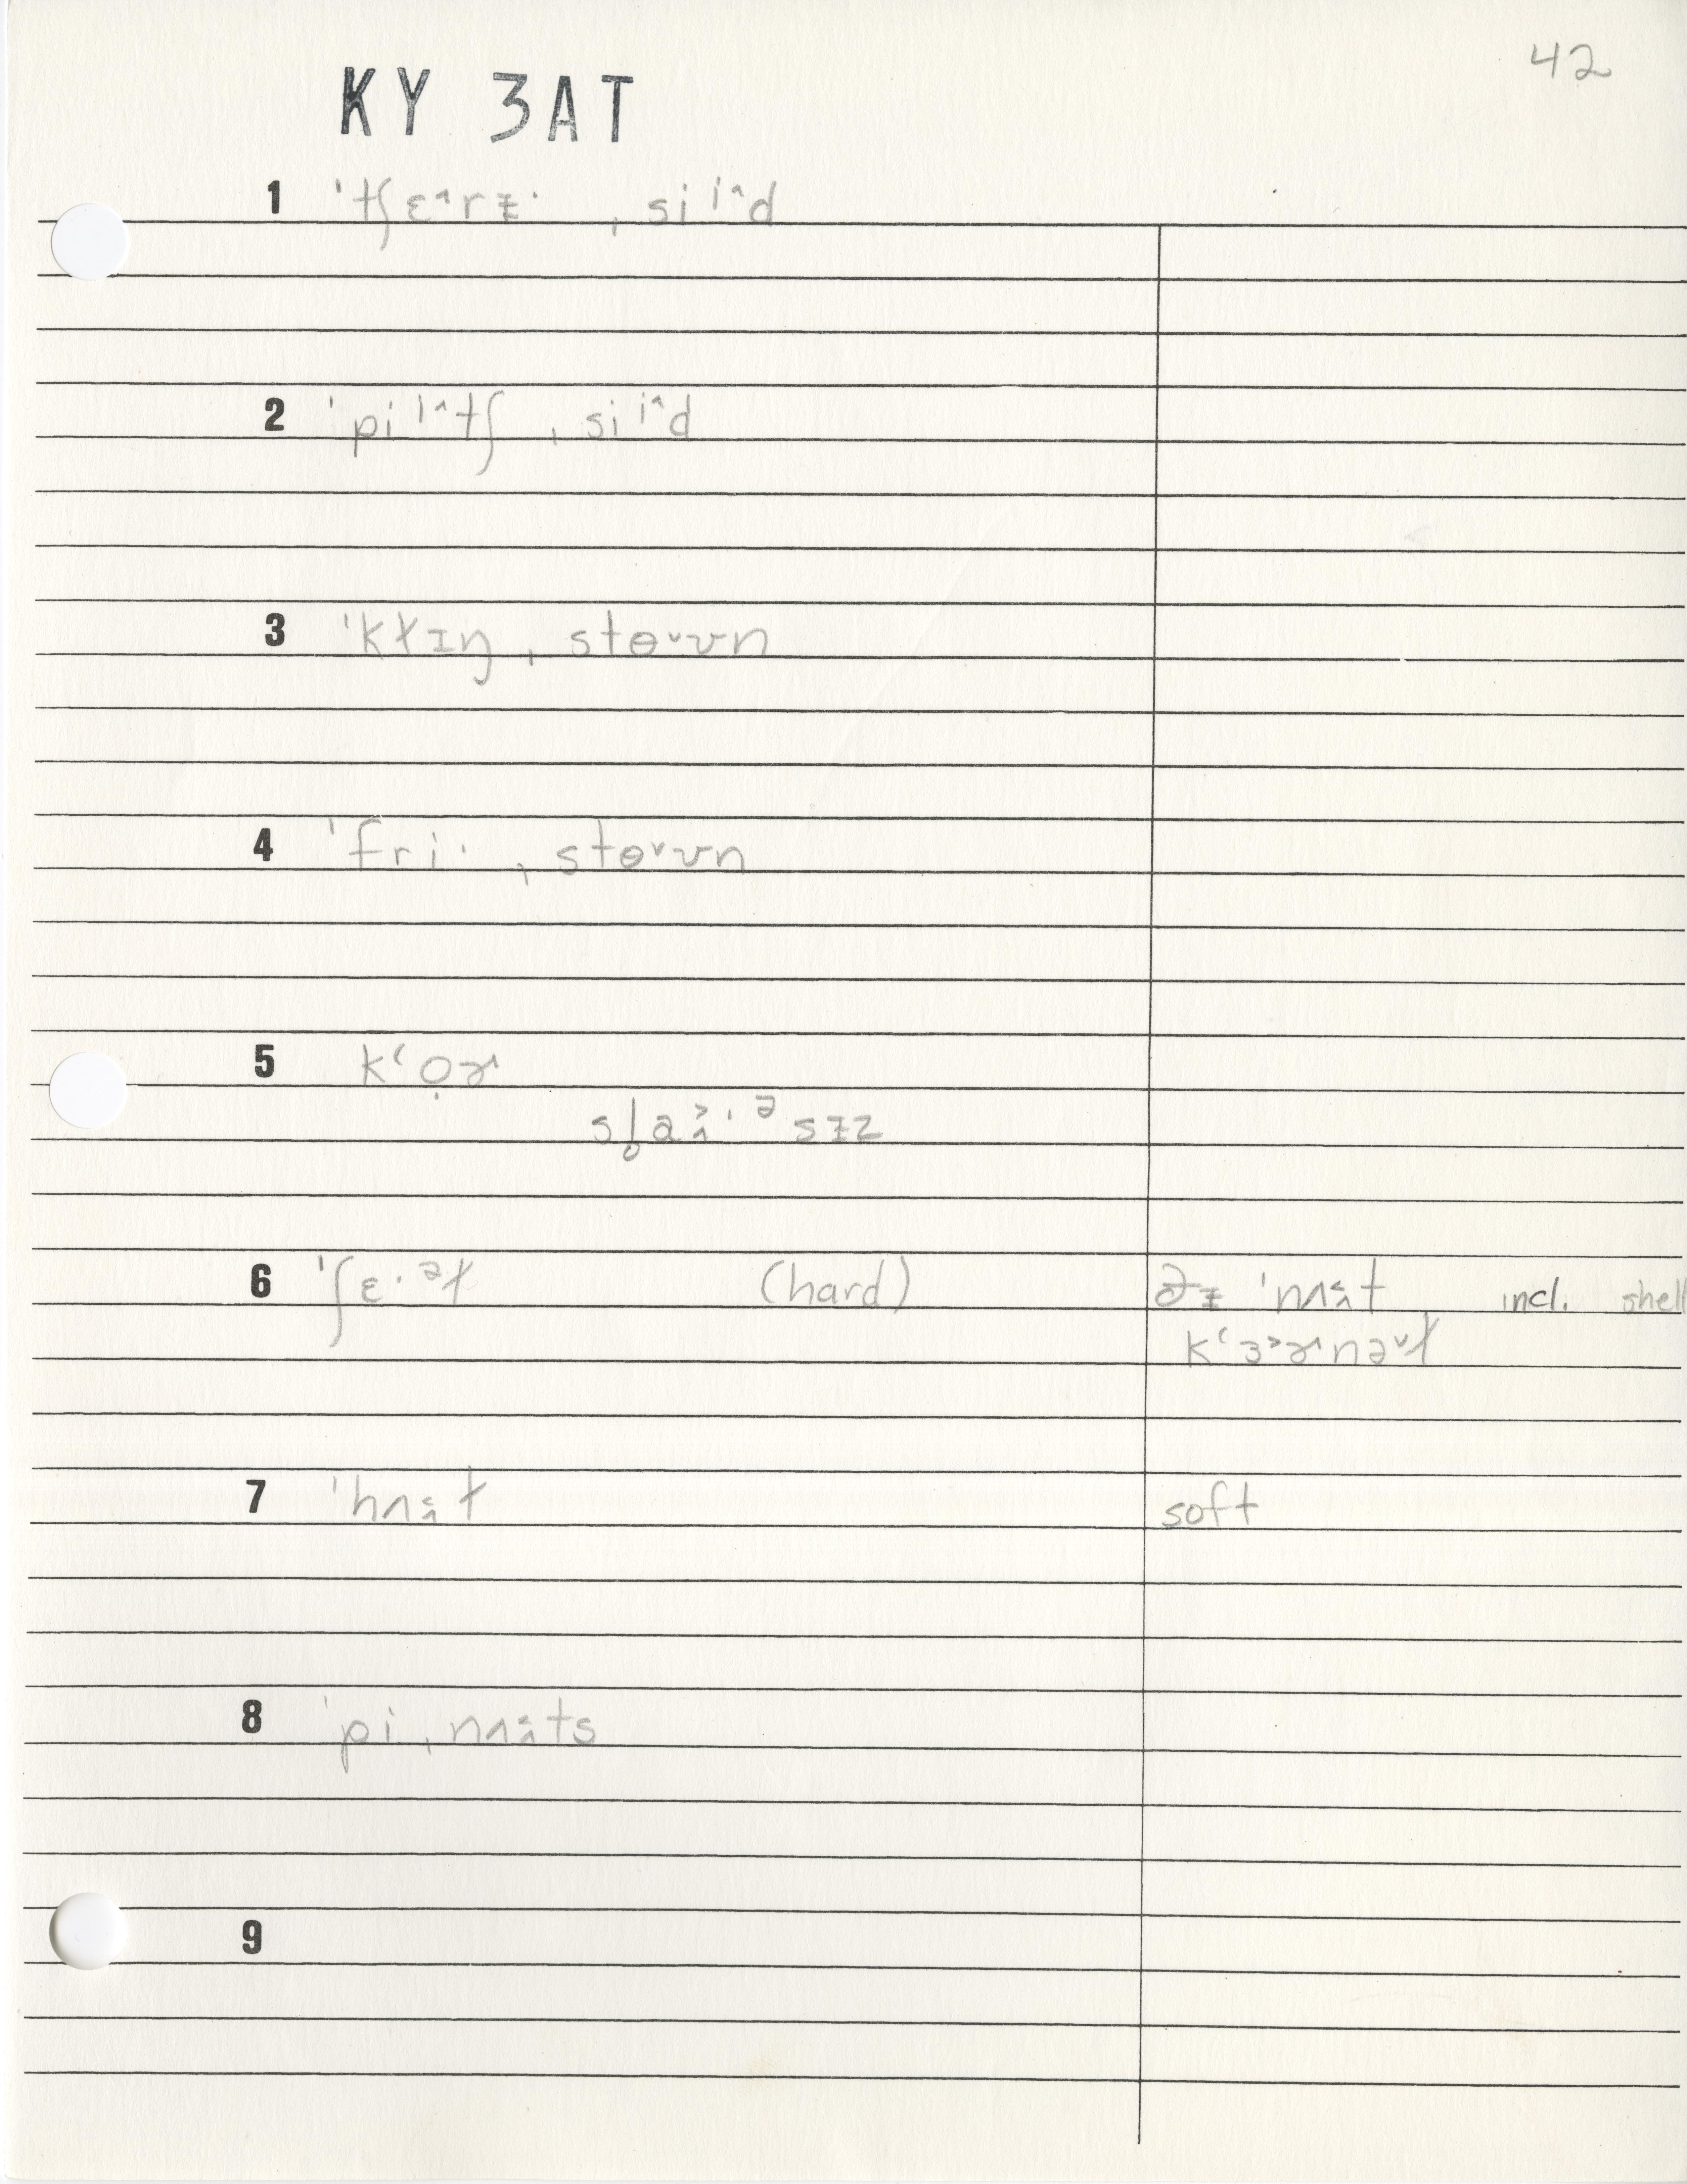 42
KY 3AT
1 ˈtʃɛ˄rɨ· ˌsiiˆd
2 ˈpiiˆtʃ ˌsiiˆd
3 ˈkɫɪŋ ˌstɵ˅ʊn
4 ˈfri· ˌstɵ˅ʊn
5 kʻọɚ
sl̥a˃˄·ᵊsɨz
6 ˈʃɛ·ᵊɫ (hard) ðɨ ˈnʌ˂˄t incl. shell
kʻɜ˃ɚnə˅ɫ
7 ˈhʌ˂˄ɫ soft
8 ˈpiˌnʌ˂˄ts
9